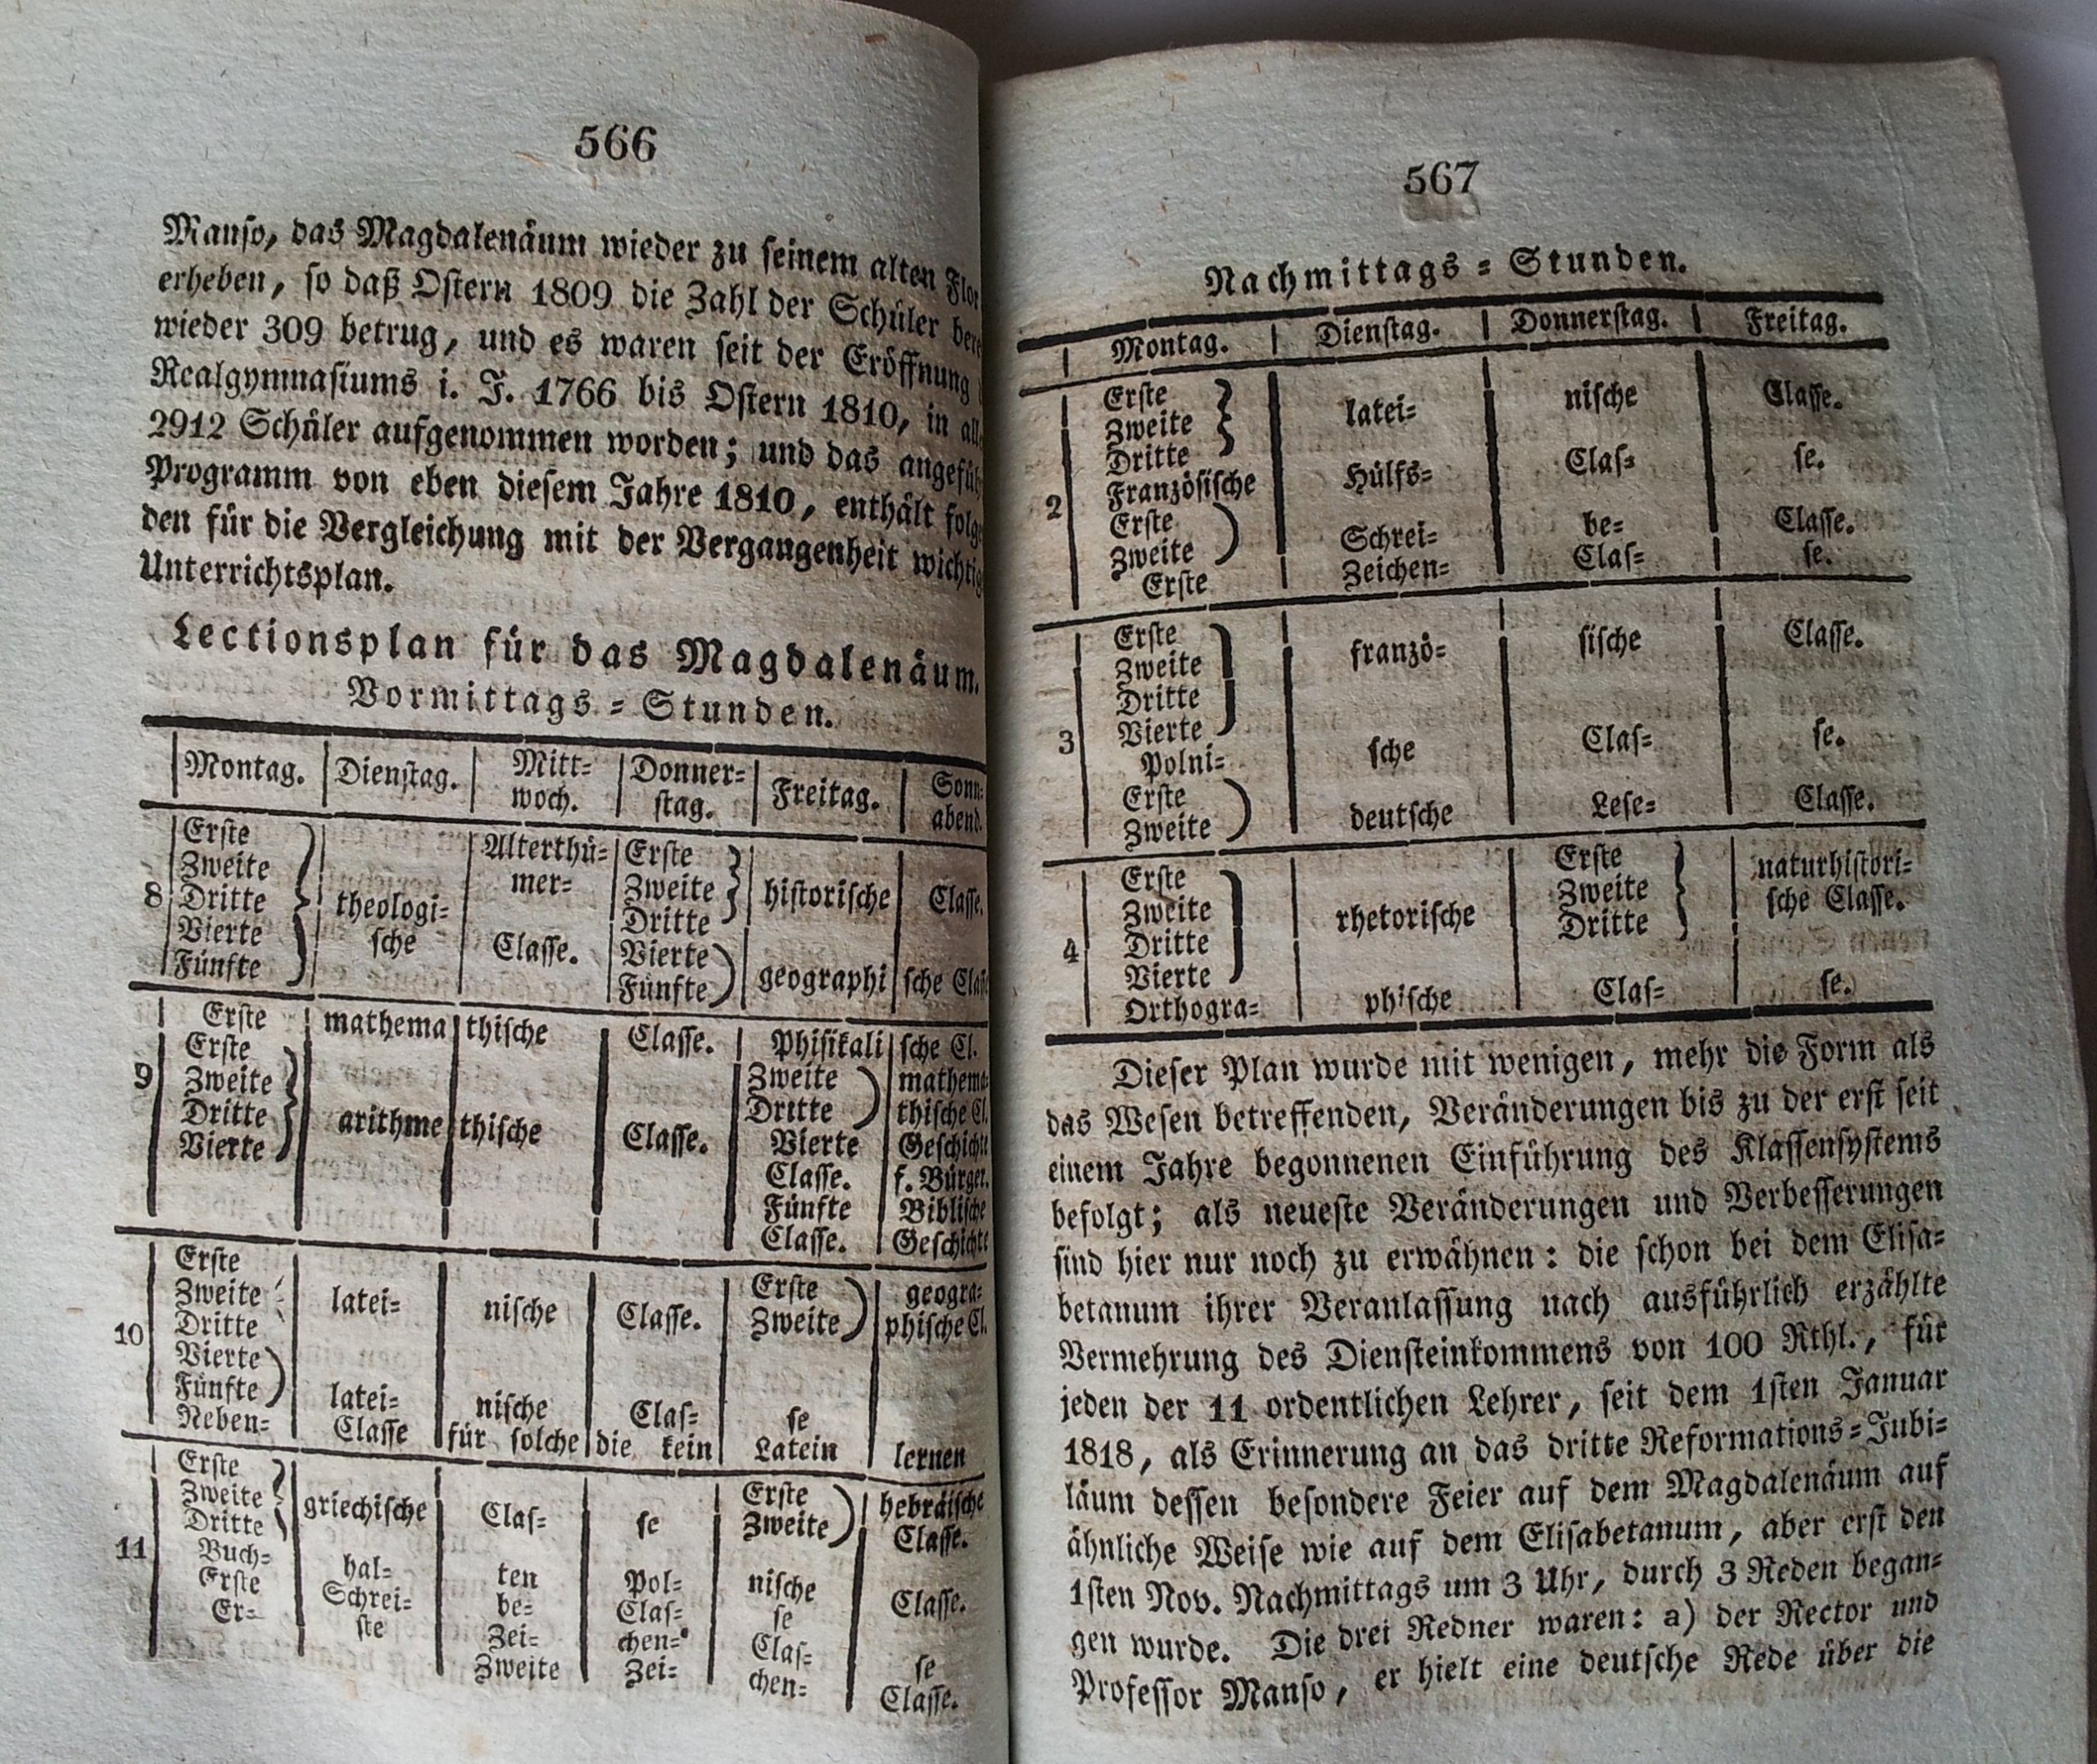 566
Manso, das Magdalenäum wieder zu seinem alten Flor
erheben, so daß Ostern 1809 die Zahl der Schüler
wieder 309 betrug, und es waren seit der Eröffnung
Realgymnasiums i. J. 1766 bis Ostern 1810, in
2912 Schüler aufgenommen worden; und das
Programm von eben diesem Jahre 1810, enthält
den für die Vergleichung mit der Vergangenheit
Unterrichtsplan.
Lectionsplan für das Magdalenäum.
Vormittags=Stunden.
Montag. Dienstag. Mitt=woch. Donner=stag. Freitag. Sonn=abend.
8
Erste
Zweite
Dritte
Vierte
Fünfte
theologi=
sche
Alterthü=
mer=
Classe.
Erste
Zweite
Dritte
Vierte
Fünfte
historische Classe.
geographi sche
9
Erste mathema thische Classe. Phisikali sche Cl.
Erste
Zweite
Dritte
Vierte
arithme thische Classe.
Zweite
Dritte
mathema=
thische Cl.
Vierte
Classe.
Geschichte
f. Bürger.
Fünfte
Classe.
Biblische
Geschichte
10
Erste
Zweite
Dritte
latei= nische Classe.
Erste
Zweite
geogra=
phische Cl.
Vierte
Fünfte
latei= nische Clas= se
Neben= Classe für solche die kein Latein lernen
11
Erste
Zweite
Dritte
griechische Clas= se
Erste
Zweite
hebräische
Classe.
Buch= hal= ten Pol= nische Classe.
Erste Schrei= be= Clas= se
Er= ste Zei= chen= Clas= se
Zweite Zei= chen= Classe.
567
Nachmittags=Stunden.
Montag. Dienstag. Donnerstag. Freitag.
2
Erste
Zweite
Dritte
latei= nische Classe.
Französische Hülfs= Clas= se.
Erste
Zweite
Schrei= be= Classe.
Erste Zeichen= Clas= se.
3
Erste
Zweite
Dritte
Vierte
franzö= sische Classe.
Polni= sche Clas= se.
Erste
Zweite
deutsche Lese= Classe.
4
Erste
Zweite
Dritte
Vierte
rhetorische
Erste
Zweite
Dritte
naturhistori=
sche Classe.
Orthogra= phische Clas= se.
Dieser Plan wurde mit wenigen, mehr die Form als
das Wesen betreffenden, Veränderungen bis zu der erst seit
einem Jahre begonnenen Einführung des Klassensystems
befolgt; als neueste Veränderungen und Verbesserungen
sind hier nur noch zu erwähnen: die schon bei dem Elisa=
betanum ihrer Veranlassung nach ausführlich erzählte
Vermehrung des Diensteinkommens von 100 Rthl., für
jeden der 11 ordentlichen Lehrer, seit dem 1sten Januar
1818, als Erinnerung an das dritte Reformations=Jubi=
läum dessen besondere Feier auf dem Magdalenäum auf
ähnliche Weise wie auf dem Elisabetanum, aber erst den
1sten Nov. Nachmittags um 3 Uhr, durch 3 Reden began=
gen wurde. Die drei Redner waren: a) der Rector und
Professor Manso, er hielt eine deutsche Rede über die